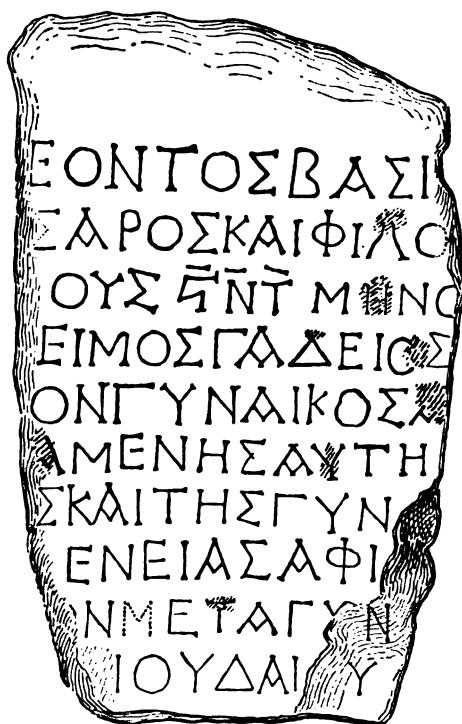 ΕΟΝΤΟΣΒΑΣΙ
ΣΑΡΟΣΚΑΙΦΙΛΟ
ΟΥΣϚΝΤΜΗΝΟ
ΕΙΜΟΣΓΑΔΕΙΟΣ
ΟΝΓΥΝΑΙΚΟΣΑ
ΑΜΕΝΗΣΑΥΤΗ
ΣΚΑΙΤΗΣΓΥΝ
ΕΝΕΙΑΣΑΦΙ
ΝΜΕΤΑΓΥΝ
ΙΟΥΔΑΙΟΥ